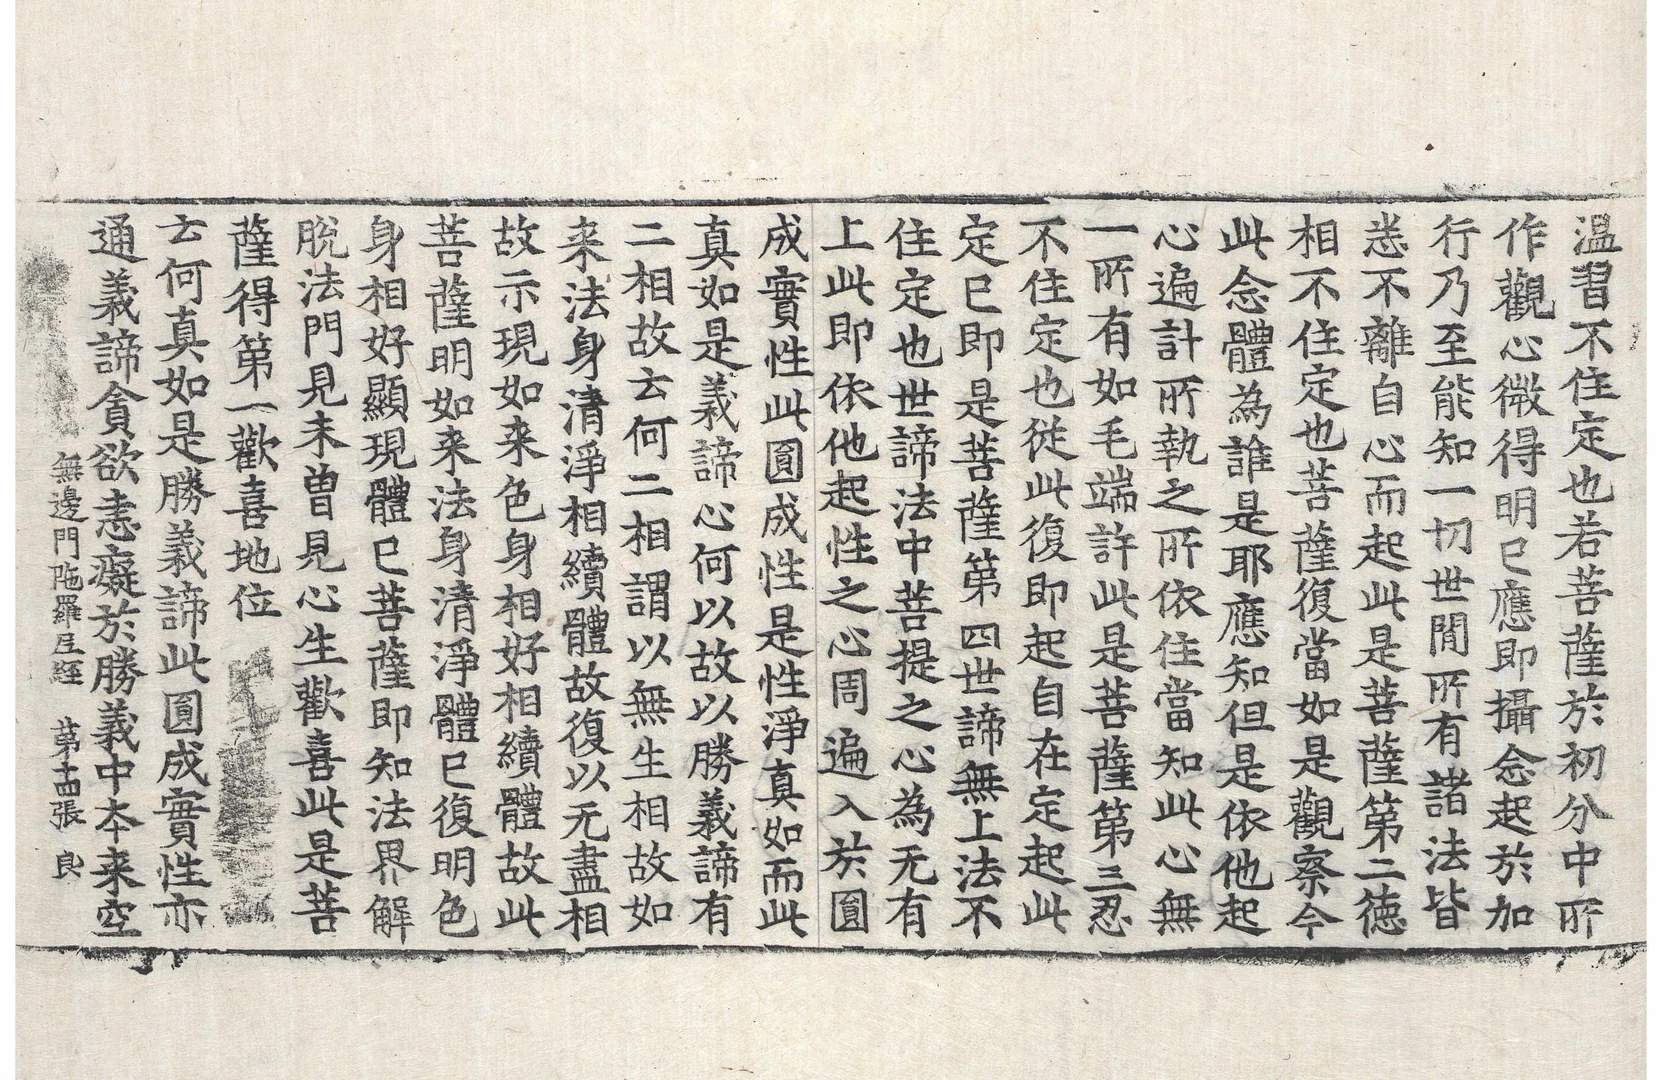 溫習不住定也若菩薩於初分中所
作觀心微得明已應即攝念起於加
行乃至能知一切世間所有諸法皆
悉不離自心而起此是菩薩第二德
相不住定也菩薩復當如是觀察今
此念體為誰是耶應知但是依他起
心遍計所執之所依住當知此心無
一所有如毛端許此是菩薩第三忍
不住定也從此復即起自在定起此
定已即是菩薩第四世諦無上法不
住定也世諦法中菩提之心為无有
上此即依他起性之心周遍入於圓
成實性此圓成性是性淨真如而此
真如是義諦心何以故以勝義諦有
二相故云何二相謂以無生相故如
来法身清淨相續體故復以无盡相
故示現如来色身相好相續體故此
菩薩明如来法身清淨體已復明色
身相好顯現體已菩薩即知法界解
脫法門見未曾見心生歡喜此是菩
薩得第一歡喜地位
云何真如是勝義諦此圓成實性亦
通義諦貪欲恚癡於勝義中本来空
無邊門陁羅尼經 第十四張 良